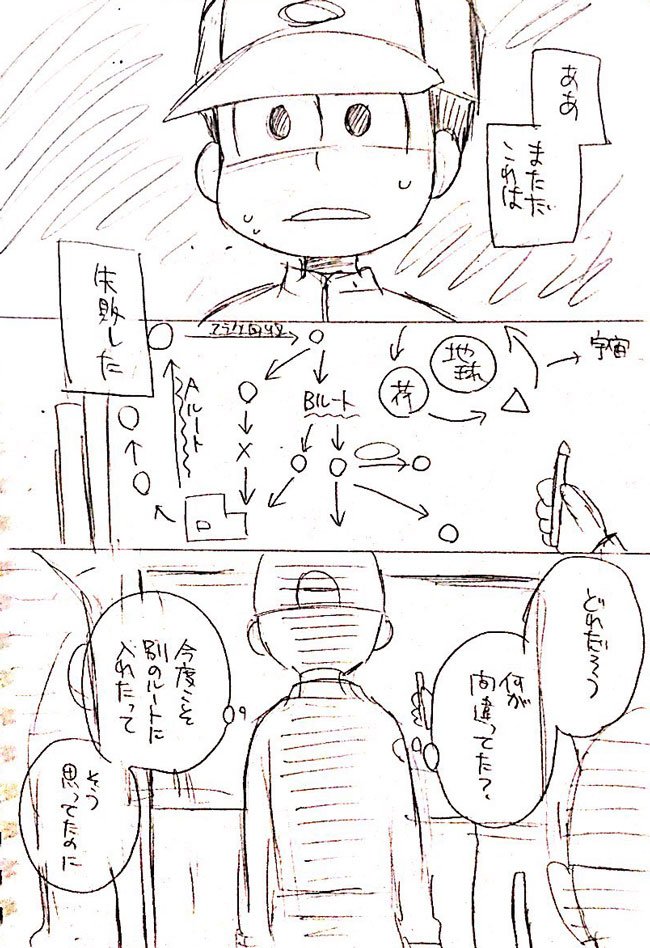 ああ
まただ
これは
失敗した
Aルート
Bルート
地球
宇宙
どれだろう
何が
間違ってた?
今度こそ
別のルートに
入れたって
そう
思ってたのに